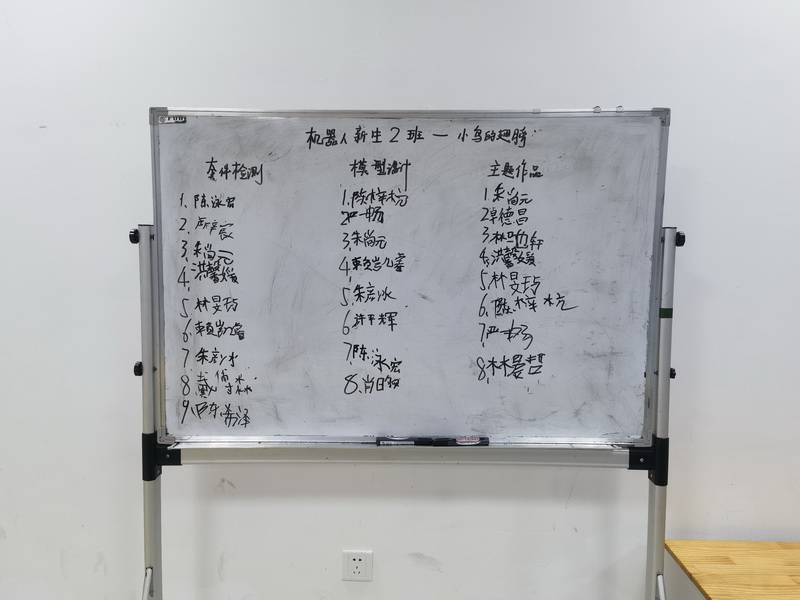 机器人新生2班一小鸟的翅膀
套件检测
1、陈泳宏
2、卢彦宸
3、朱尚元
4、洪馨媛
5、林旻玷
6、赖岩
7、朱彦冰
8、戴
9、陈希泽
模型设计
1、陈梓杭
2、严畅
3、朱尚元
4、赖岩
5、朱彦冰
6、许干辉
7、陈泳宏
8、肖日
主题作品
1、朱尚元
2、卓德昌
3、林
4、洪馨媛
5、林旻玷
6、陈梓杭
7、严畅
8、林晏哲